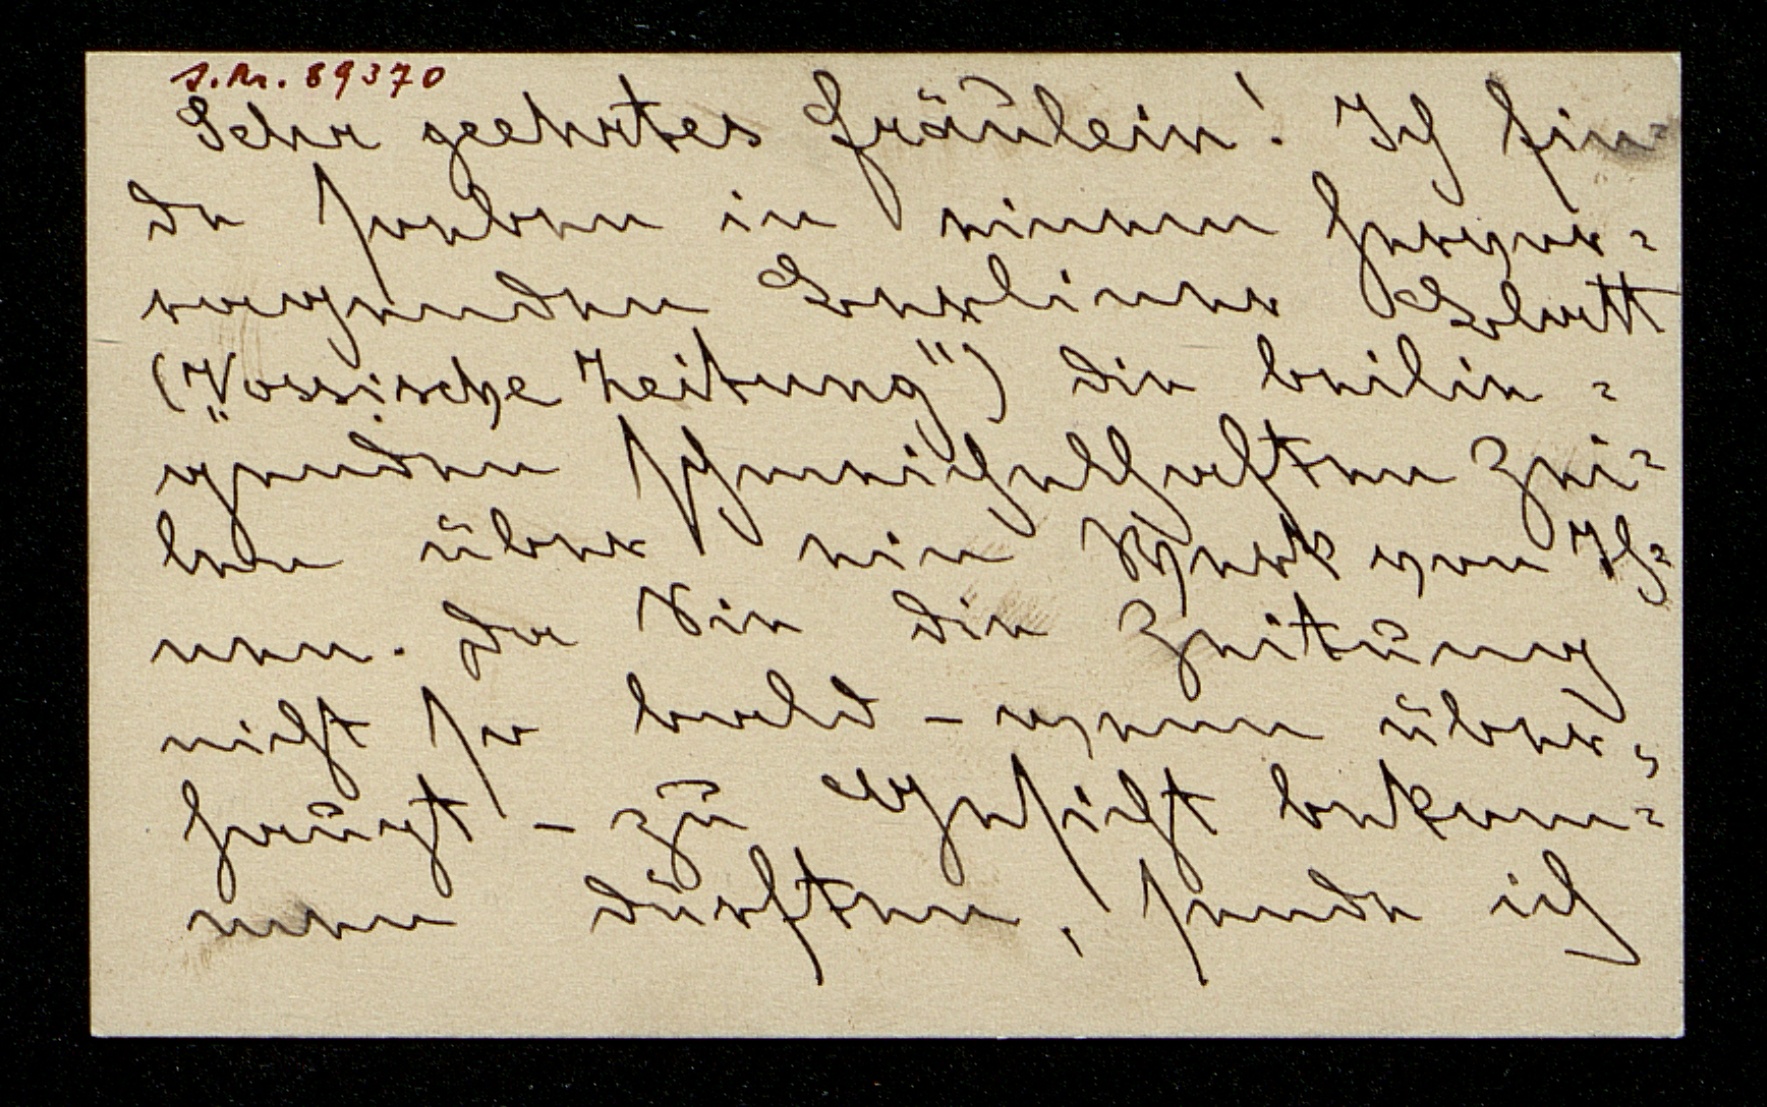 J.Nr. 89370
Sehr geehrtes Fräulein! Ich fin-
de soeben in einem hervor-
ragenden Berliner Blatt
(„Vossische Zeitung") die beilie-
genden schmeichelhaften Zei-
len über ein Werk von Ih-
nen. Da Sie die Zeitung
nicht so bald – wenn über-
haupt – zu Gesicht bekom-
men dürften, sende ich